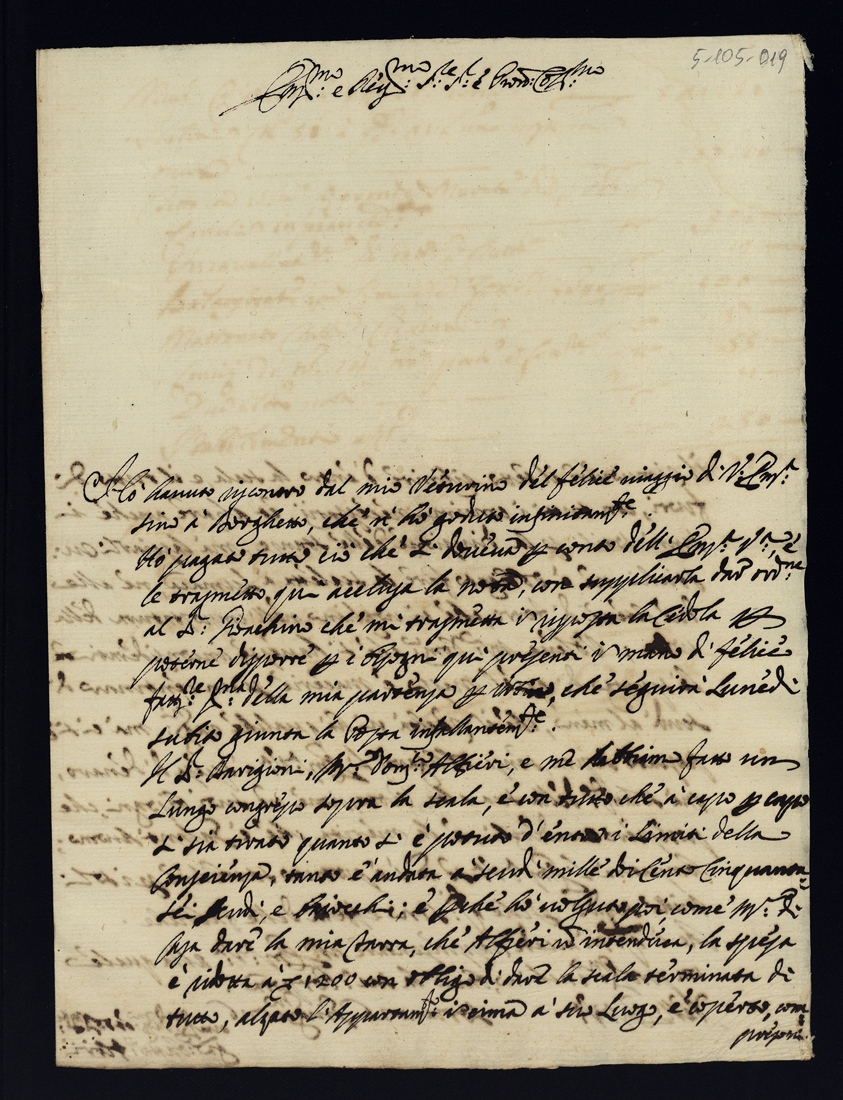 5-105-019
Em:mo e Re:mo S:re S:r e Pron: Col:mo
Hò hauuto riscontro dal mio Vetturino del felice uiaggio di V: Em:a
sino à Borghetto, che n'hò goduto infinitam:te.
Hò pagato tutto ciò che si doueua p conto dell' Em:a V:a, e
le trasmetto qui acclusa la nota, con supplicarla dar' ord:ne
al S: Gioachino che mi trasmetta in risposta la Cedola p
poterne disporre p i bisogni qui presenti in mano di felice
prima della mia partenza p, che seguirà Lunedì
subito giunta la Posta infallantem:te.
Il S: Barigioni, Mr: Alfieri, e me habbiam fatto un
Lungo congresso sopra la scala, e con tutto che à capo p capo
si sia tirato quanto si è potuto d'entro i Limiti della
Conscienza, tanto è andata à scudi mille ducento Cinquanta
sei scudi, e baiocchi; e pche hò uolsuto poi, come Mr: di
Casa dare la mia tarra, che Alfieri n'intendeua, la spesa
è ridotta à 1200 con obligo di dare la scala terminata di
tutto, alzato l'Appartam:to in cima à suo Luogo, e coperto, com